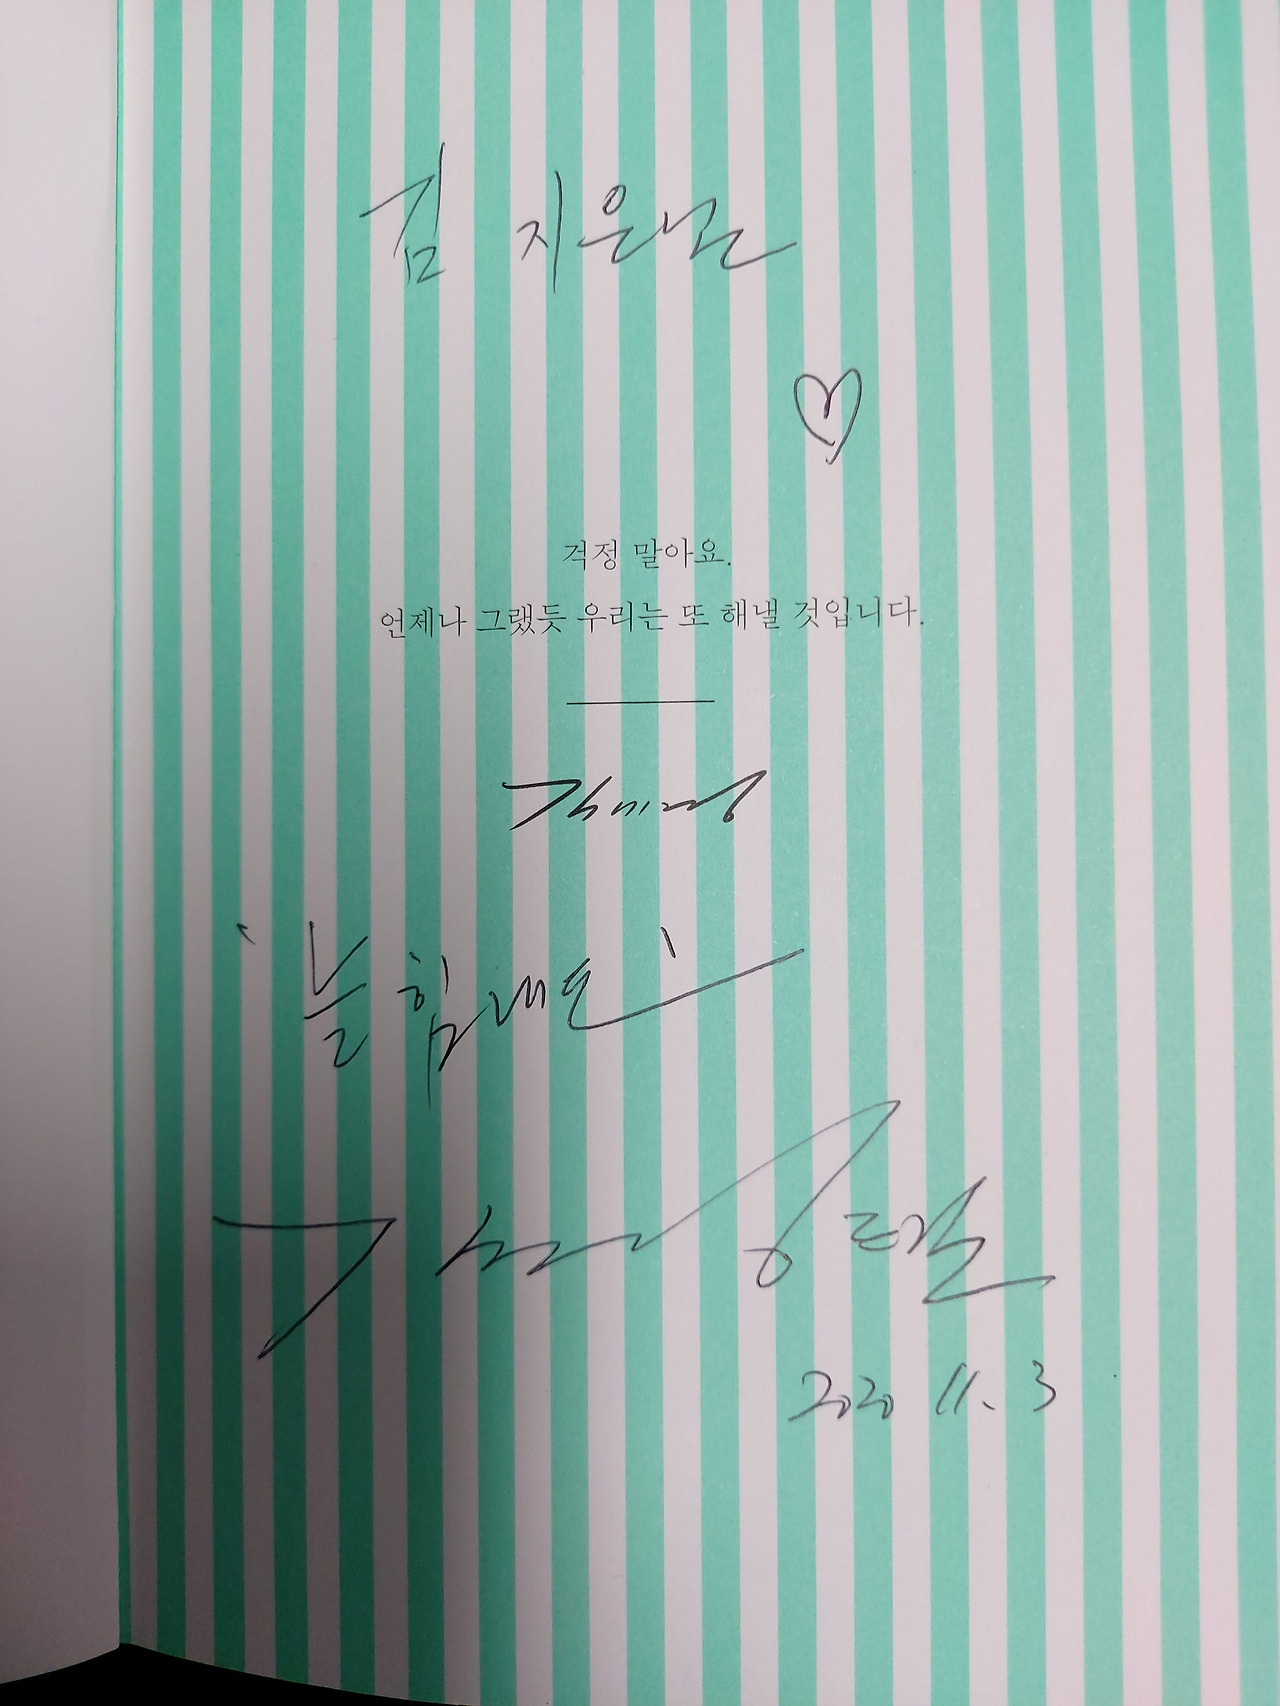 김 지은님
♡
걱정 말아요.
언제나 그랬듯 우리는 또 해낼 것입니다.
김미경
늘 힘내요
2020 11. 3